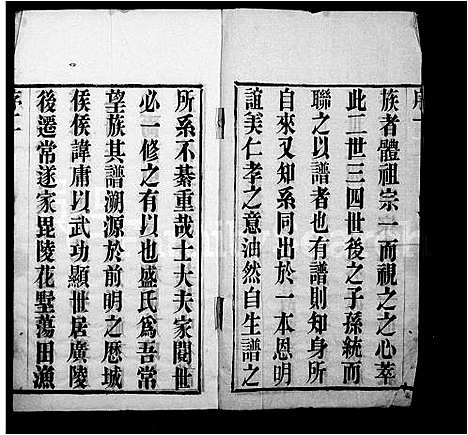 族者體祖宗一而視之之心萃
此二世三四世後之子孫統而
聯之以譜者也有譜則知身所
自來又知系同出於一本恩明
誼美仁孝之意油然自生譜之
所系不綦重哉士大夫家閱世
必一修之有以也盛氏爲吾常
望族其譜溯源於前明之歷城
侯侯諱庸以武功顯世居廣陵
後遷常遂家毘陵花墅蕩田漁
序二